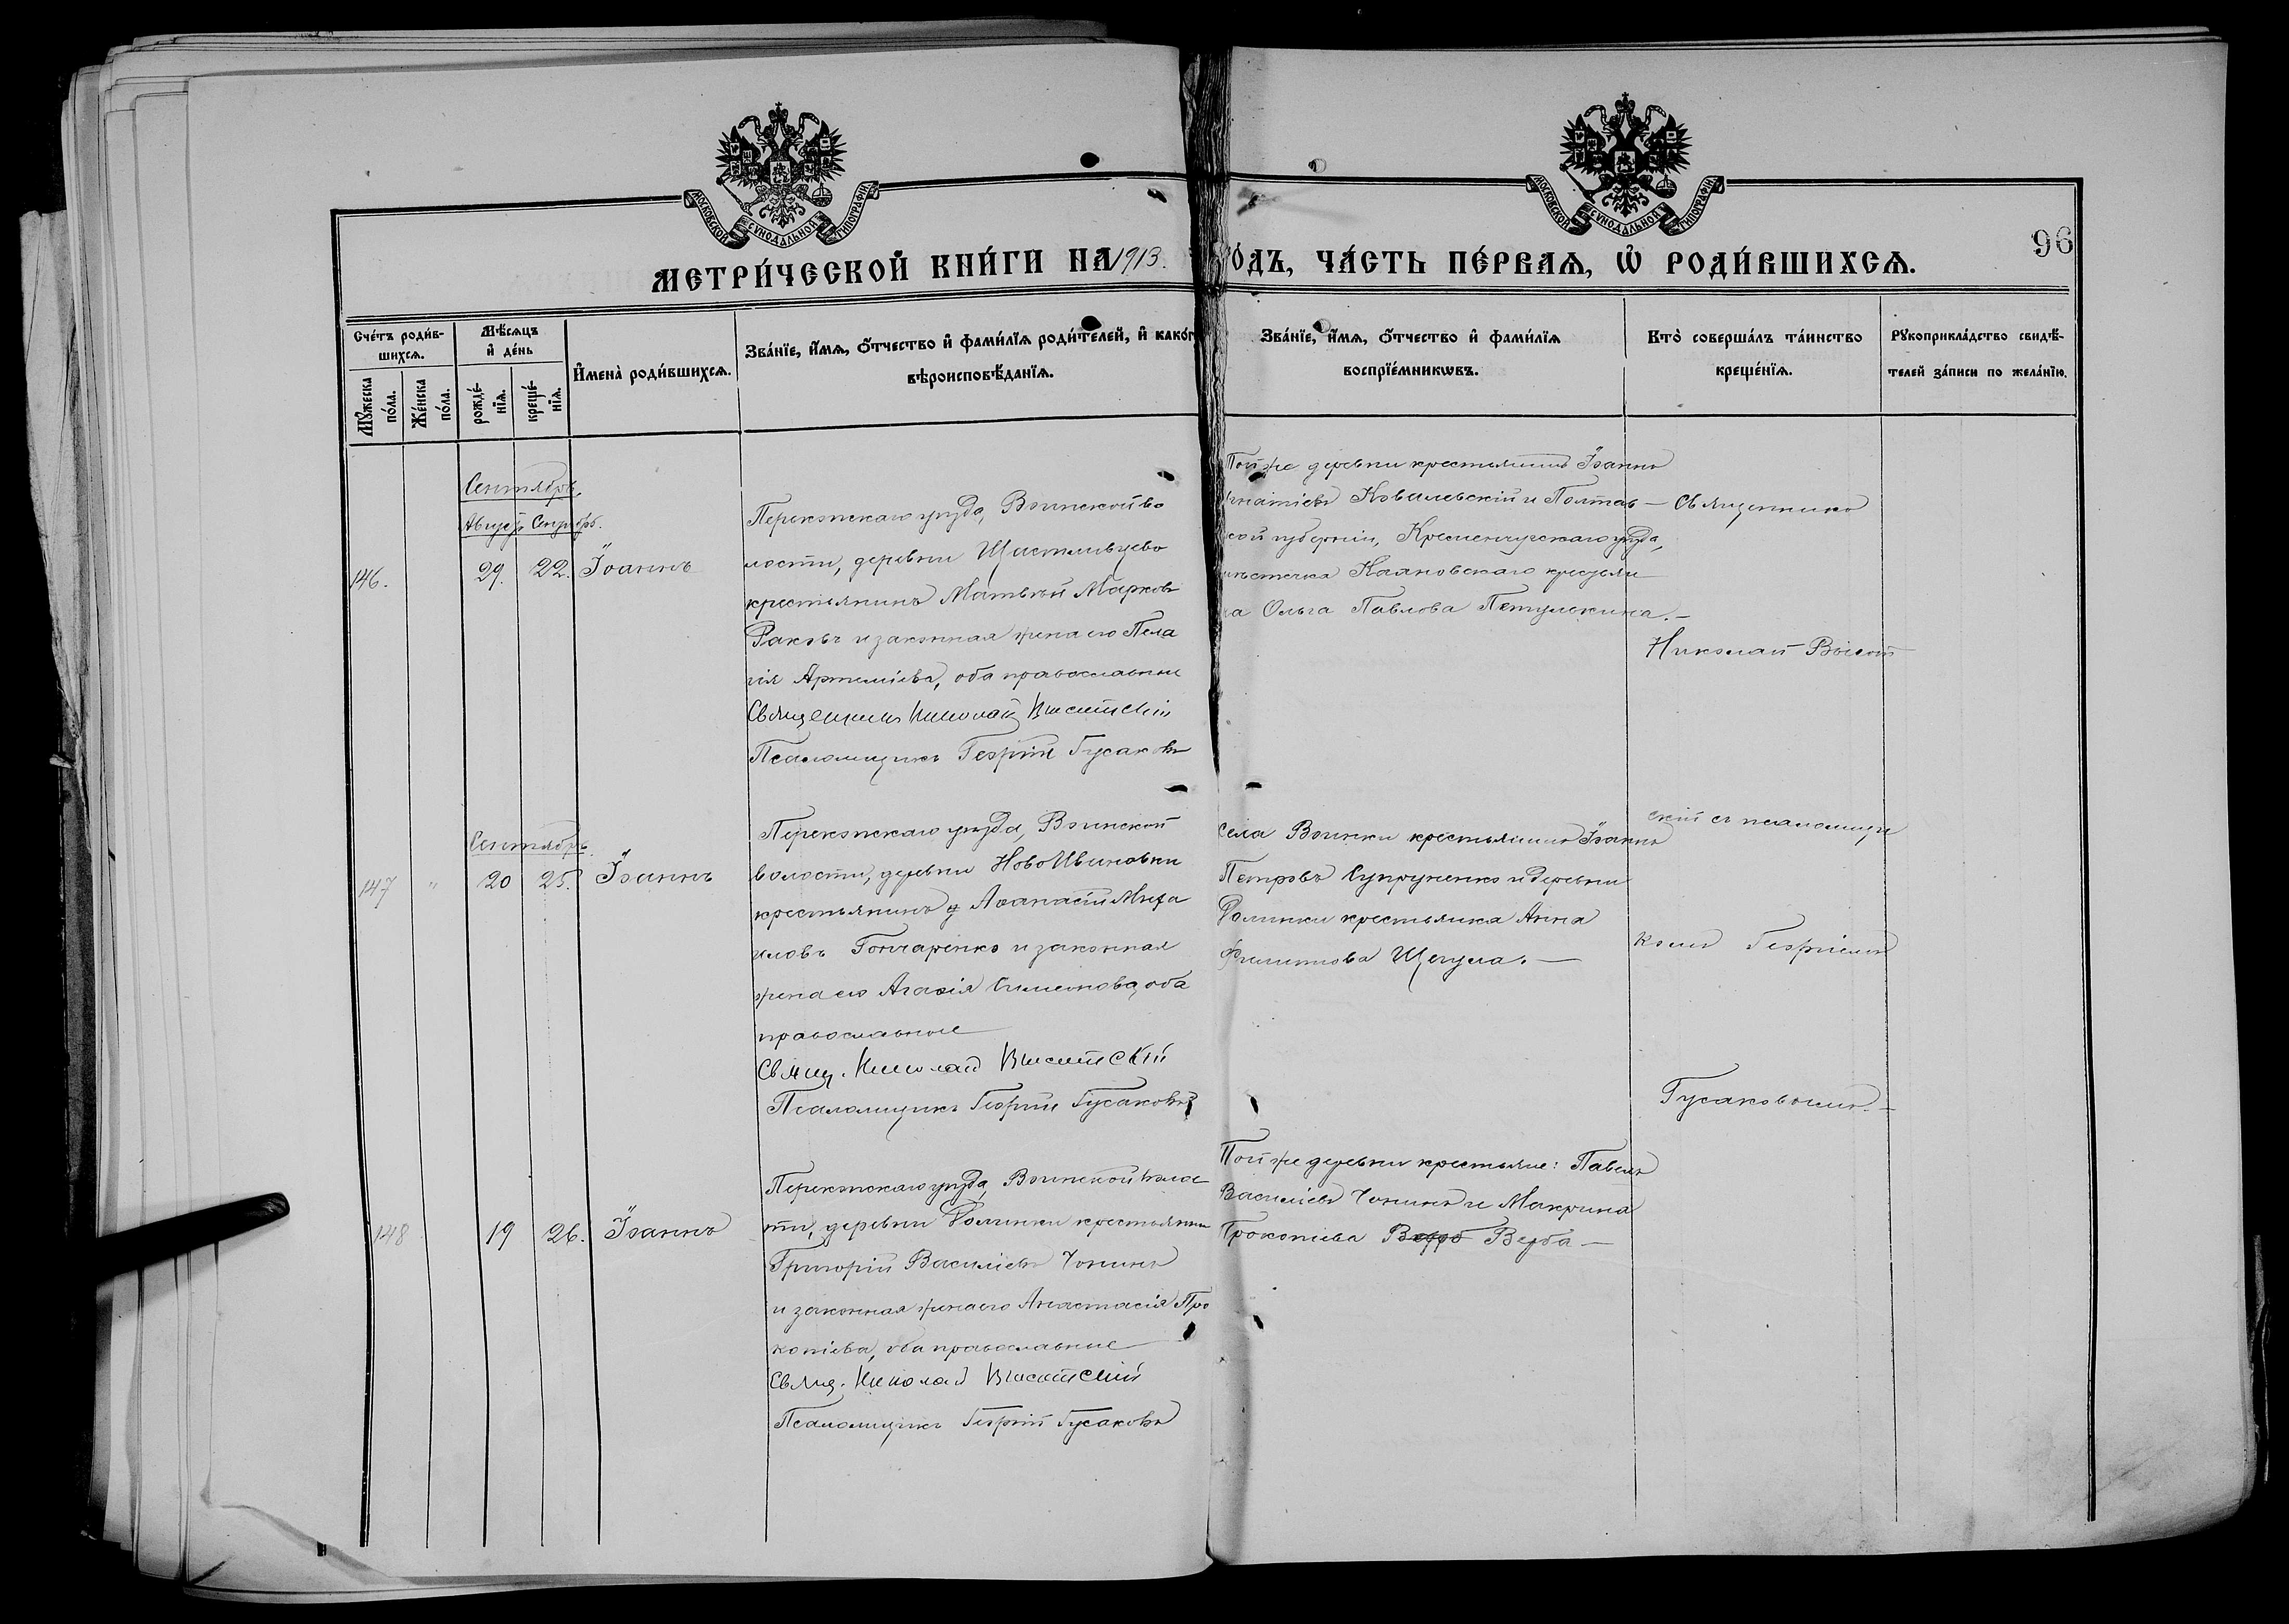 МОСКОВСКОЙ СУНОДАЛЬНОЙ ТИПОГРАФІИ
МОСКОВСКОЙ СУНОДАЛЬНОЙ ТИПОГРАФІИ
96
МЕТРИ́ЧЕСКОЙ КНИ́ГИ НА 1913. ГО́ДЪ, ЧА́СТЬ ПЕ́РВАѦ, Ѡ҆ РОДИ́ВШИХСѦ.
Сче́тъ роди́в-
шихсѧ.
Мѹ́жеска
по́ла.
Же́нска
по́ла.
Мѣ́сѧцъ
и҆ де́нь
рожде́-
нїѧ.
креще́-
нїѧ.
И҆мена̀ роди́вшихсѧ.
Зва́нїе, и҆́мѧ, ѻ҆́тчество и҆ фами́лїѧ роди́телей, и҆ како́г
вѣроисповѣ́данїѧ.
Зва́нїе, и҆́мѧ, ѻ҆́тчество и҆ фами́лїѧ
воспрїе́мникѡвъ.
Кто̀ соверша́лъ та́инство
креще́нїѧ.
Рѹкоприкла́дство свидѣ́-
телей за́писи по жела́нїю.
Сентябрь.
Августъ Сентябрь.
146.
29.
22.
Іоаннъ
Перекопскаго уѣзда, Воинской во
лости, деревни Щастливцево
крестьянинъ Матвѣй Марковъ
Раковъ и законная жена его Пела
гія Артеміева, оба православные
Священникъ Николай Высотскій
Псаломщикъ Георгій Гусаковъ
Той же деревни крестьянинъ Іоаннъ
Игнатіевъ Ковалевскій и Полтав-
ской губерніи, Кременчугскаго уѣзда,
мѣстечка крестьян
ка Ольга Павлова Петулькина.-
Священникъ
Николай Высот
Сентябрь.
147
"
20
25.
Іоаннъ
Перекопскаго уѣзда, Воинской
волости, деревни НовоИвановки
крестьянинъ Аѳанасій Миха
иловъ Гончаренко и законная
жена его Агаѳія Симеонова, оба
православные
Свящ. Николай Высотскій
Псаломщикъ Георгій Гусаковъ
Села Воинки крестьянинъ Іоаннъ
Петровъ Супруненко и деревни
крестьянка Анна
Филиппова
скій съ псаломщи
комъ Георгіемъ
Гусаковымъ.-
148
19
26.
Іоаннъ
Перекопскаго уѣзда, Воинской волос
ти, деревни крестьянинъ
Григорій Василіевъ Чонинъ
и законная жена его Анастасія Про
копіева, оба православные
Свящ. Николай Высотскій
Псаломщикъ Георгій Гусаковъ
Той же деревни крестьяне: Павелъ
Василіевъ Чонинъ и Макрина
Прокопіева Верба-